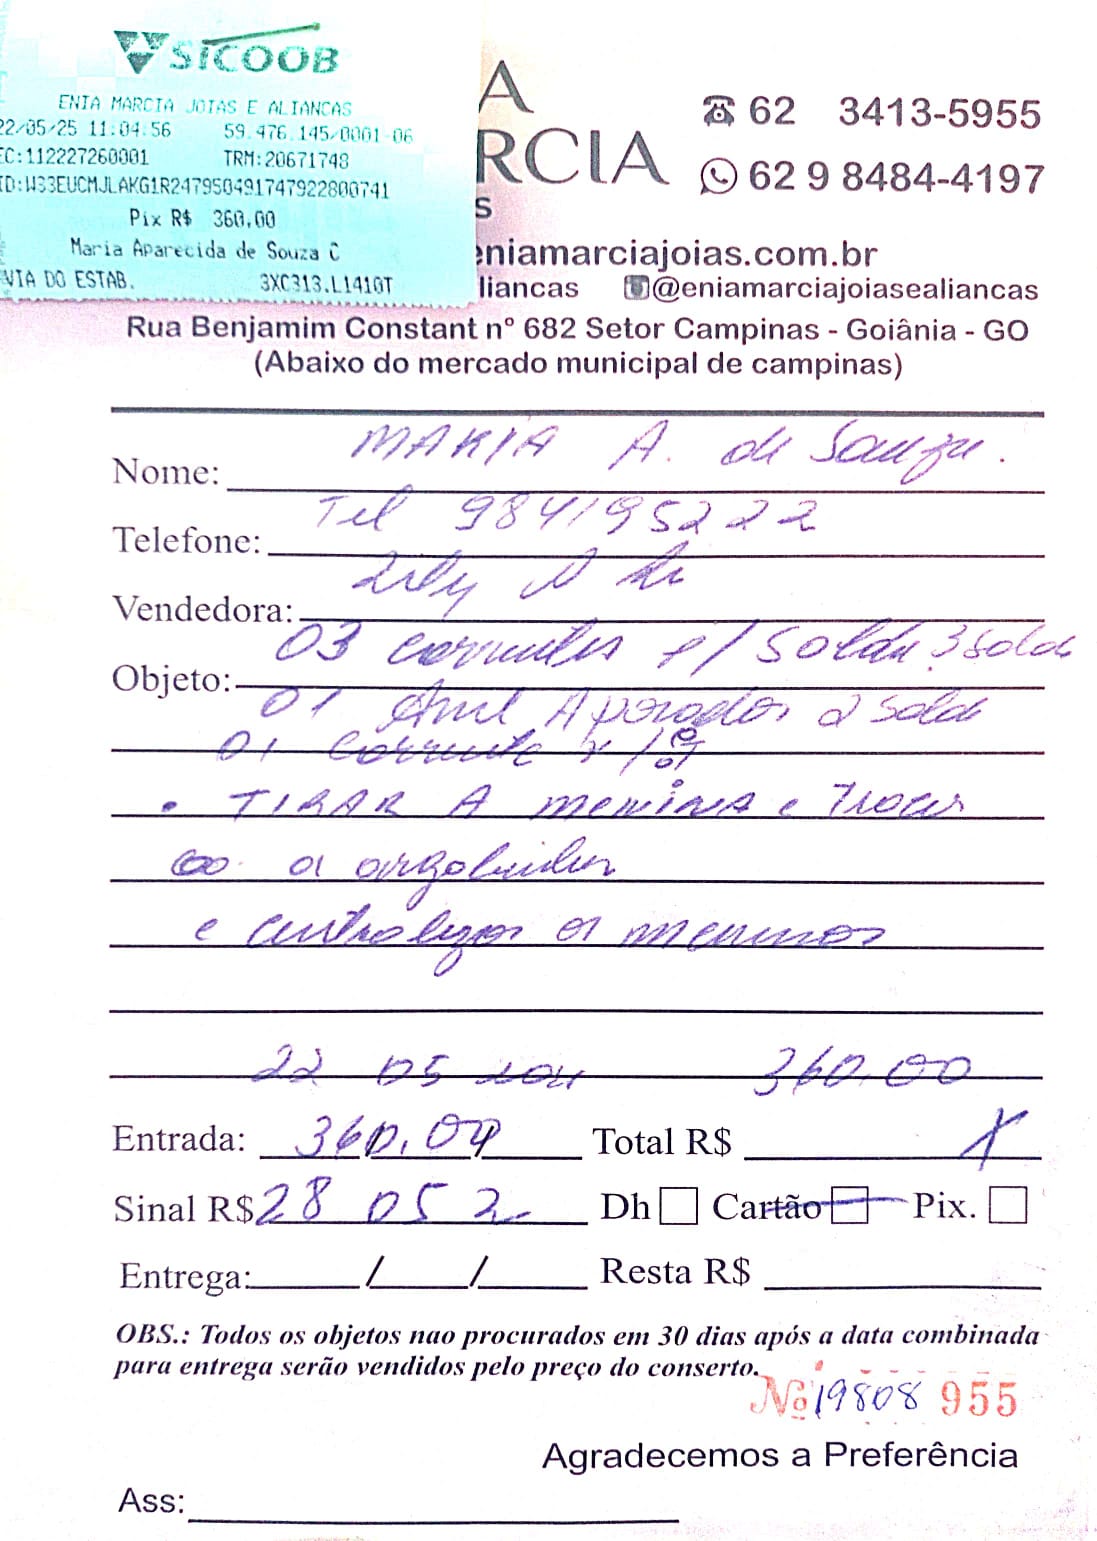 SICOOB
ENIA MARCIA JOIAS E ALIANCAS
22/05/25 11:04:56 59.476.145/0001-06
EC:112227260001 TRM:20671748
ID:W33EUCMJLAKG1R247950491747922800741
Pix R$ 360,00
Maria Aparecida de Souza C
VIA DO ESTAB. 3XC313.L1410T
A
RCIA
S
62 3413-5955
62 9 8484-4197
eniamarciajoias.com.br
liancas @eniamarciajoiasealiancas
Rua Benjamim Constant nº 682 Setor Campinas - Goiânia - GO
(Abaixo do mercado municipal de campinas)
Nome: MARIA A. de Souza.
Telefone: Tel 984195222
Vendedora:
Objeto: 03 correntes p/ Solda 3 solda
01 Anel Aparador 2 Solda
01 Corrente
• TIRAR A menina e Trocar
a argolinha
e centralizar os meninos
22 05 360,00
Entrada: 360,00 Total R$ X
Sinal R$ 28 05 2 Dh Cartão Pix.
Entrega: / / Resta R$
OBS.: Todos os objetos nao procurados em 30 dias após a data combinada
para entrega serão vendidos pelo preço do conserto.
Nº 19808 955
Agradecemos a Preferência
Ass: